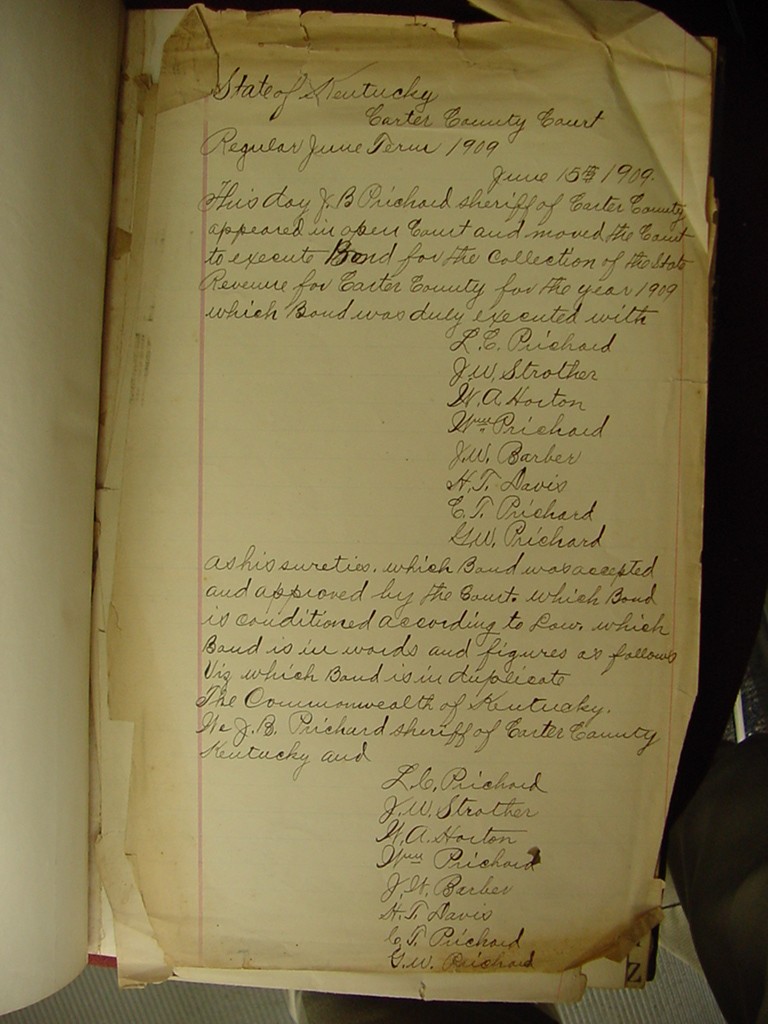 State of Kentucky
Carter County Court
Regular June Term 1909
June 15th 1909.
This day J. B Prichard sheriff of Carter County
appeared in open Court and moved the Court
to execute Bond for the Collection of the State
Revenue for Carter County for the year 1909
which Bond was duly executed with
L. C. Prichard
J. W. Strother
W. A Horton
Wm Prichard
J. W. Barber
H. T. Davis
C. T. Prichard
G. W. Prichard
as his sureties. which Bond was accepted
and approved by the Court. which Bond
is conditioned according to Law. which
Bond is in words and figures as follows
Viz which Bond is in duplicate
The Commonwealth of Kentucky.
We J. B. Prichard sheriff of Carter County
Kentucky and
L. C. Prichard
J. W. Strother
W. A. Horton
Wm Prichard
J. W. Barber
H. T. Davis
C. T. Prichard
G. W. Prichard
Z